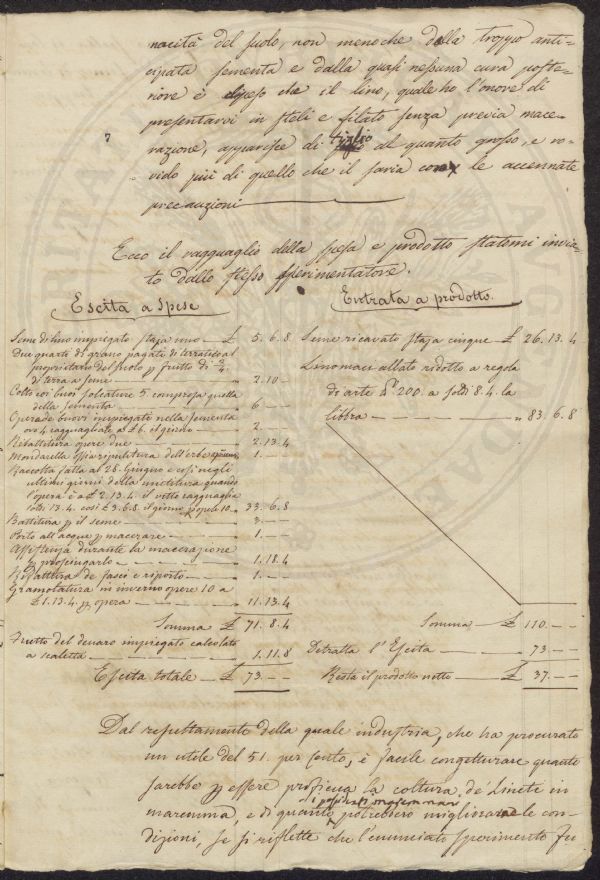 nacità del suolo, non meno che dalla troppo anti-
cipata sementa e dalla quasi nessuna cura poste-
riore è dipeso che il lino, quale ho l'onore di
presentarvi in steli e filato senza previa mace-
razione, apparisse di tiglio al quanto grosso, e ro-
vido più di quello che il saria con le accennate
precauzioni
Ecco il ragguaglio della spesa e prodotto statomi invia-
to dallo stesso sperimentatore.
Escita a Spese
Seme di lino impiegato staja uno — £ 5. 6. 8
Due quarti di grano pagati di terratico al
proprietario del suolo p frutto di 3/4.
di terra a seme — „ 2. 10 –
Colto coi buoi solcature 5. compresa quella
della sementa — „ 6 — –
Opera de buovi impiegati nella sementa
ore 4 ragguagliate a £ 6. il giorno — „ 2. – –
Ribattitura opere due — „ 2. 13. 4
Mondarella ossia ripulitura dell'erbe — „ 1. – –
Raccolta fatta al 28. Giugno e così negli
ultimi giorni della mietitura quando
l'opera è a £ 2. 13. 4. il vitto ragguaglia
soldi 13. 4. così £ 3. 6. 8. il giorno p opere 10 — 33. 6. 8
Battitura p il seme — „ 3. – –
Porto all'acque p macerare — „ 1. – –
Assistenza durante la macerazione
e prosciugarlo — „ 1. 18. 4
Ribattitura de fasci e riporto — „ 1. – –
Gramolatura in inverno opere 10 a
£ 1. 13. 4. p opera — „ 11. 13. 4
Somma — £ 71. 8. 4
Frutto del denaro impiegato calcolato
a scaletta — „ 1. 11. 8
Escita totale — £ 73. – –
Entrata a prodotto.
Seme ricavato staja cinque — £ 26. 13. 4
Lino maciullato ridotto a regola
di arte lb 200. a soldi 8. 4. la
libbra — „ 83. 6. 8
Somma — £ 110. – –
Detratta l'Escita — 73. – –
Resta il prodotto netto — £ 37. – –
Dal resultamento della quale industria, che ha procurato
un utile del 51. per cento, è facile congetturare quanto
sarebbe p essere proficua la coltura de' Lineti in
maremma, e di quanto i possidenti maremmani potrebbero migliorarne le con-
dizioni, se si riflette che l'enunciato sperimento fu